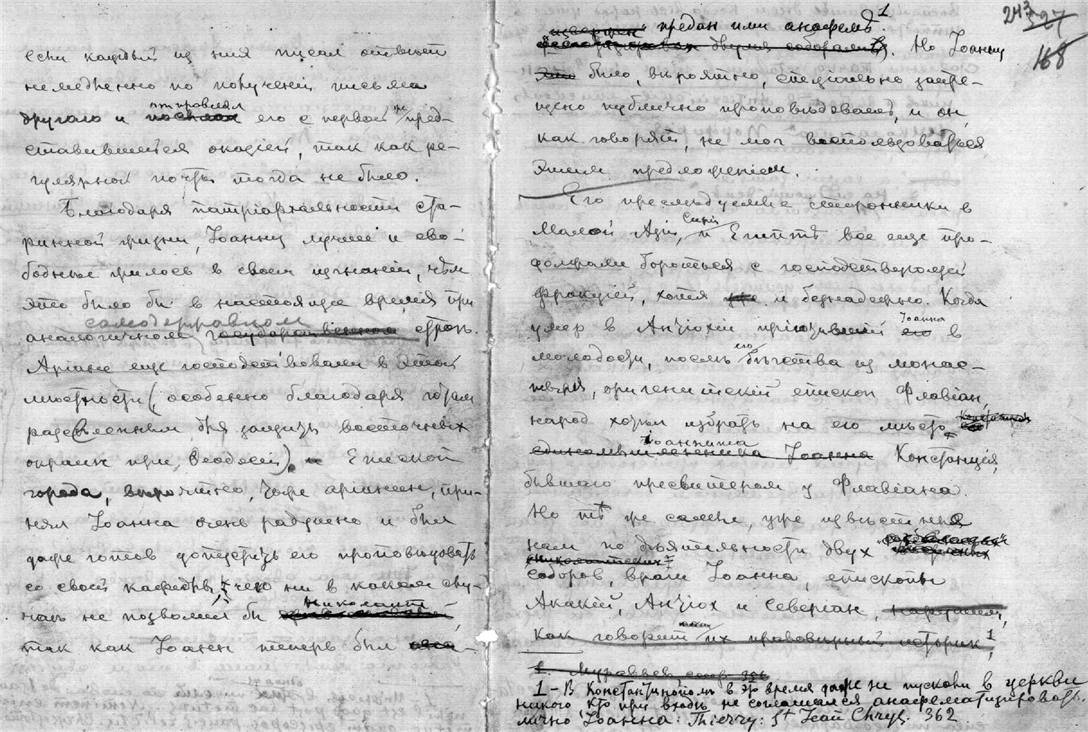 если каждый из них писал ответ
немедленно по полученіи письма
другого и отправлял его с первой же пред-
ставившейся оказіей, так как ре-
гулярной почты тогда не было.
Благодаря патріархальности ста-
ринной жизни, Іоанну лучше и сво-
боднее жилось в своем изгнаніи, чѣм
это было бы в настоящее время при
аналогичном самодержавном строѣ.
Аріане еще господствовали в этой
мѣстности (особенно благодаря готам
разселенным для защиты восточных
окраин при Ѳеодосіи). Епископ
города, вѣроятно, тоже аріанин, при-
нял Іоанна очень радушно и был
даже готов допустить его проповѣдовать
со своей кафедры, чего ни в каком слу-
чаѣ не позволил бы николаит,
так как Іоанн теперь был
предан или анафемѣ.1 Но Іоанну
было, вѣроятно, спеціально запре-
щено публично проповѣдовать, и он,
как говорят, не мог воспользоваться
этим предложеніем.
Его преслѣдуемые сторонники в
Малой Азіи, Сиріи и Египтѣ все еще про-
должали бороться с господствующей
фракціей, хотя и безнадежно. Когда
умер в Антіохіи пріютившій Іоанна в
молодости, послѣ его бѣгства из монас-
тыря, оригенитскій епископ Флавіан,
народ хотѣл избрать на его мѣсто
Іоаннита Констанція,
бывшаго пресвитером у Флавіана.
Но тѣ же самые, уже извѣстные
нам по дѣятельности двух
соборов, враги Іоанна, епископы
Акакій, Антіох и Северіан,
как говорит их правовѣрный историк,1
1 – В Константинополѣ в это время даже не пускали в церкви
никого кто при входѣ не соглашался анафематизировать
лично Іоанна: Thierry: St Jean Chrys. 362
243
168